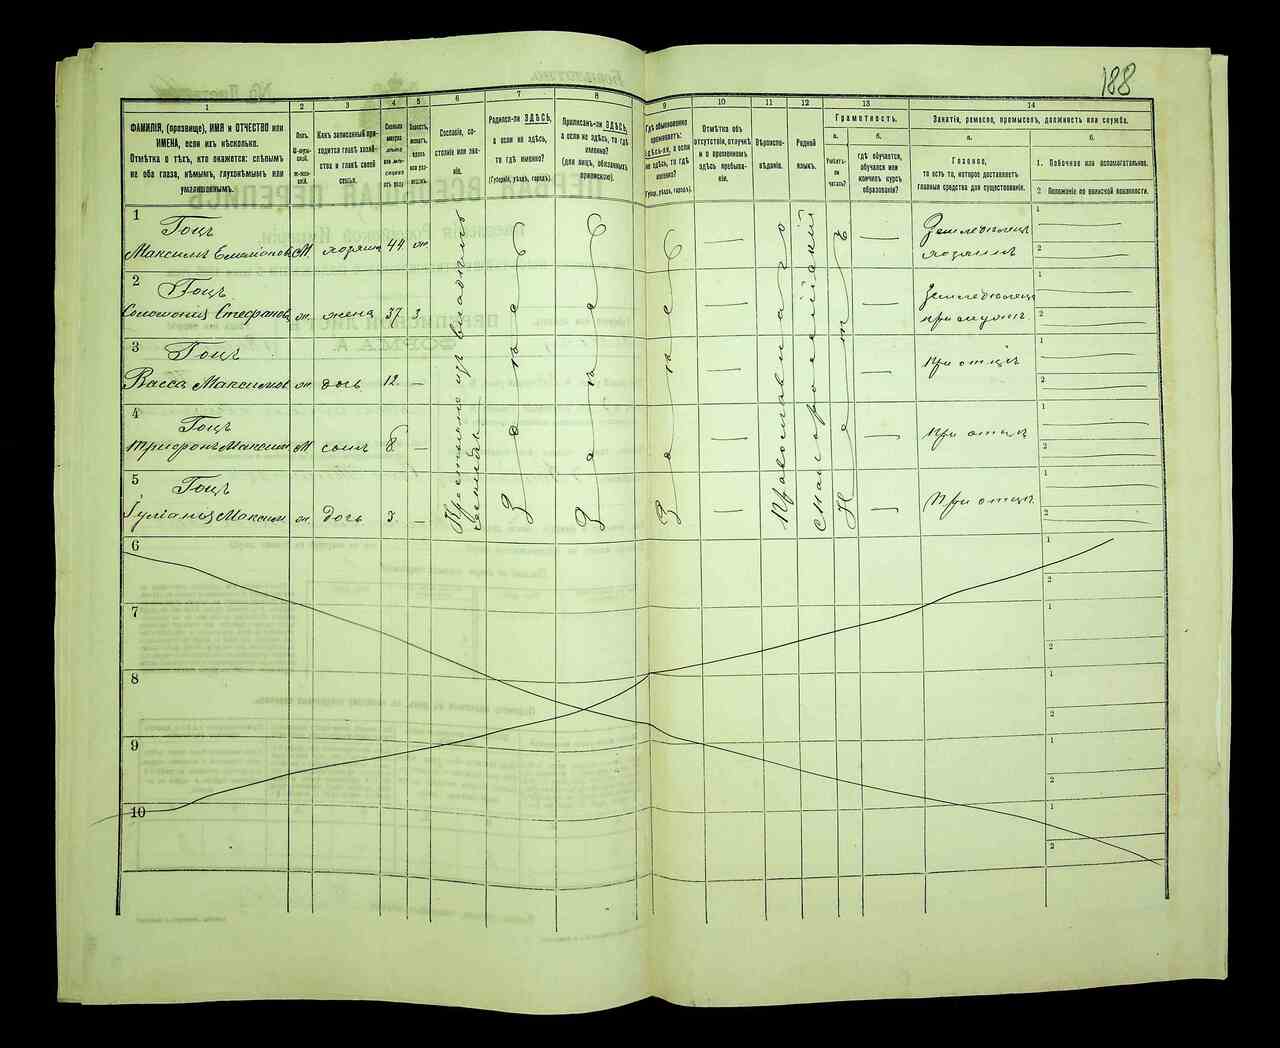 188
1
2
3
4
5
6
7
8
9
10
11
12
13
14
ФАМИЛІЯ, (прозвище), ИМЯ и ОТЧЕСТВО или
ИМЕНА, если ихъ нѣсколько.
Отмѣтка о тѣхъ, кто окажется: слѣпымъ
на оба глаза, нѣмымъ, глухонѣмымъ или
умалишеннымъ.
Полъ.
М-муж-
ской.
Ж-жен-
скій.
Какъ записанный при-
ходится главѣ хозяй-
ства и главѣ своей
семьи.
Сколько
минуло
лѣтъ
или мѣ-
сяцевъ
отъ роду
Сословіе, со-
стояніе или зва-
ніе.
Родился-ли ЗДѢСЬ,
а если не здѣсь,
то гдѣ именно?
(Губернія, уѣздъ, городъ).
Приписанъ-ли ЗДѢСЬ,
а если не здѣсь, то гдѣ
именно?
(для лицъ, обязанныхъ
припискою).
Гдѣ обыкновенно
проживаетъ:
здѣсь-ли, а если
не здѣсь, то гдѣ
именно?
(Губер., уѣздъ, городъ).
Отмѣтка объ
отсутствіи, отлучкѣ
и о временномъ
здѣсь пребыва-
ніи.
Вѣроиспо-
вѣданіе.
Родной
языкъ.
Грамотность.
а.
Умѣетъ-
ли
читать?
б.
гдѣ обучается,
обучался или
кончилъ курсъ
образованія?
Занятіе, ремесло, промыселъ, должность или служба.
а.
Главное,
то есть то, которое доставляетъ
главныя средства для существованія.
б.
1. Побочное или вспомогательное.
2 Положеніе по воинской повинности.
1
Гоцъ
Максимъ М хозяинъ 44 ж.
Земледѣлецъ
хозяинъ
1
2
2
Гоцъ
Соломонія Стефанов. ж. жена 37 з.
1
2
3
Гоцъ
Васса Максимов ж. дочь 12. —
при отцѣ
1
2
4
Гоцъ
Трифонъ Максим М сынъ 8 —
при отцѣ
1
2
5
Гоцъ
Максим ж. дочь 3. —
при отцѣ
1
2
Крестьяне изъ
Здѣсь
Здѣсь
Здѣсь
Православная
Малороссійскій
Нѣтъ
6
1
2
7
1
2
8
1
2
9
1
2
10
1
2